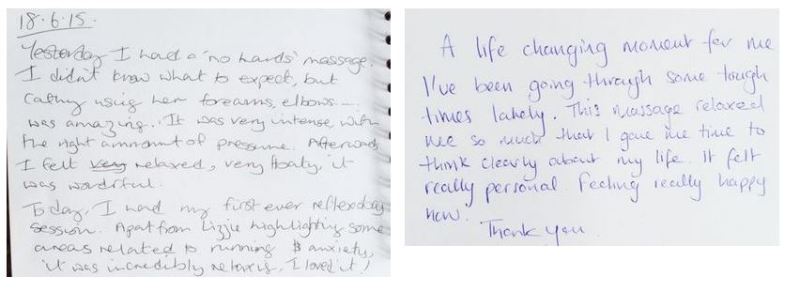 18.6.15.
Yesterday I had a 'no hands' massage.
I didn't know what to expect, but
Cathy using her forearms, elbows...
was amazing.. It was very intense, with
the right ammount of pressure. Afterwards
I felt very relaxed, very floaty, it
was wonderful.
Today, I had my first ever reflexology
session. Apart from Lizzie highlighting some
areas related to running & anxiety,
it was incredibly relaxing, I loved it!
A life changing moment for me
I've been going through some tough
times lately. This massage relaxed
me so much that I gave me time to
think clearly about my life. It felt
really personal. Feeling really happy
now.
Thank you